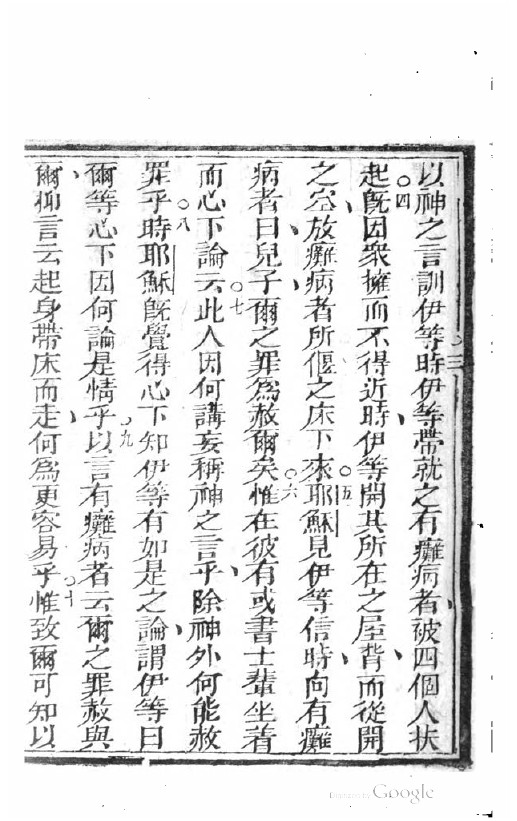 以神之言訓伊等時伊等帶就之有癱病者被四個人扶
起旣因衆擁而不得近時伊等開其所在之屋背而從開
之空放癱病者所偃之床下來耶穌見伊等信時向有癱
病者曰兒子爾之罪爲赦爾矣惟在彼有或書士輩坐着
而心下論云此人因何講妄稱神之言乎除神外何能赦
罪乎時耶穌旣覺得心下知伊等有如是之論謂伊等曰
爾等心下因何論是情乎以言有癱病者云爾之罪赦與
爾抑言云起身帶床而走何爲更容易乎惟致爾可知以
三
四
五
六
七
八
九
十
Digitized by Google